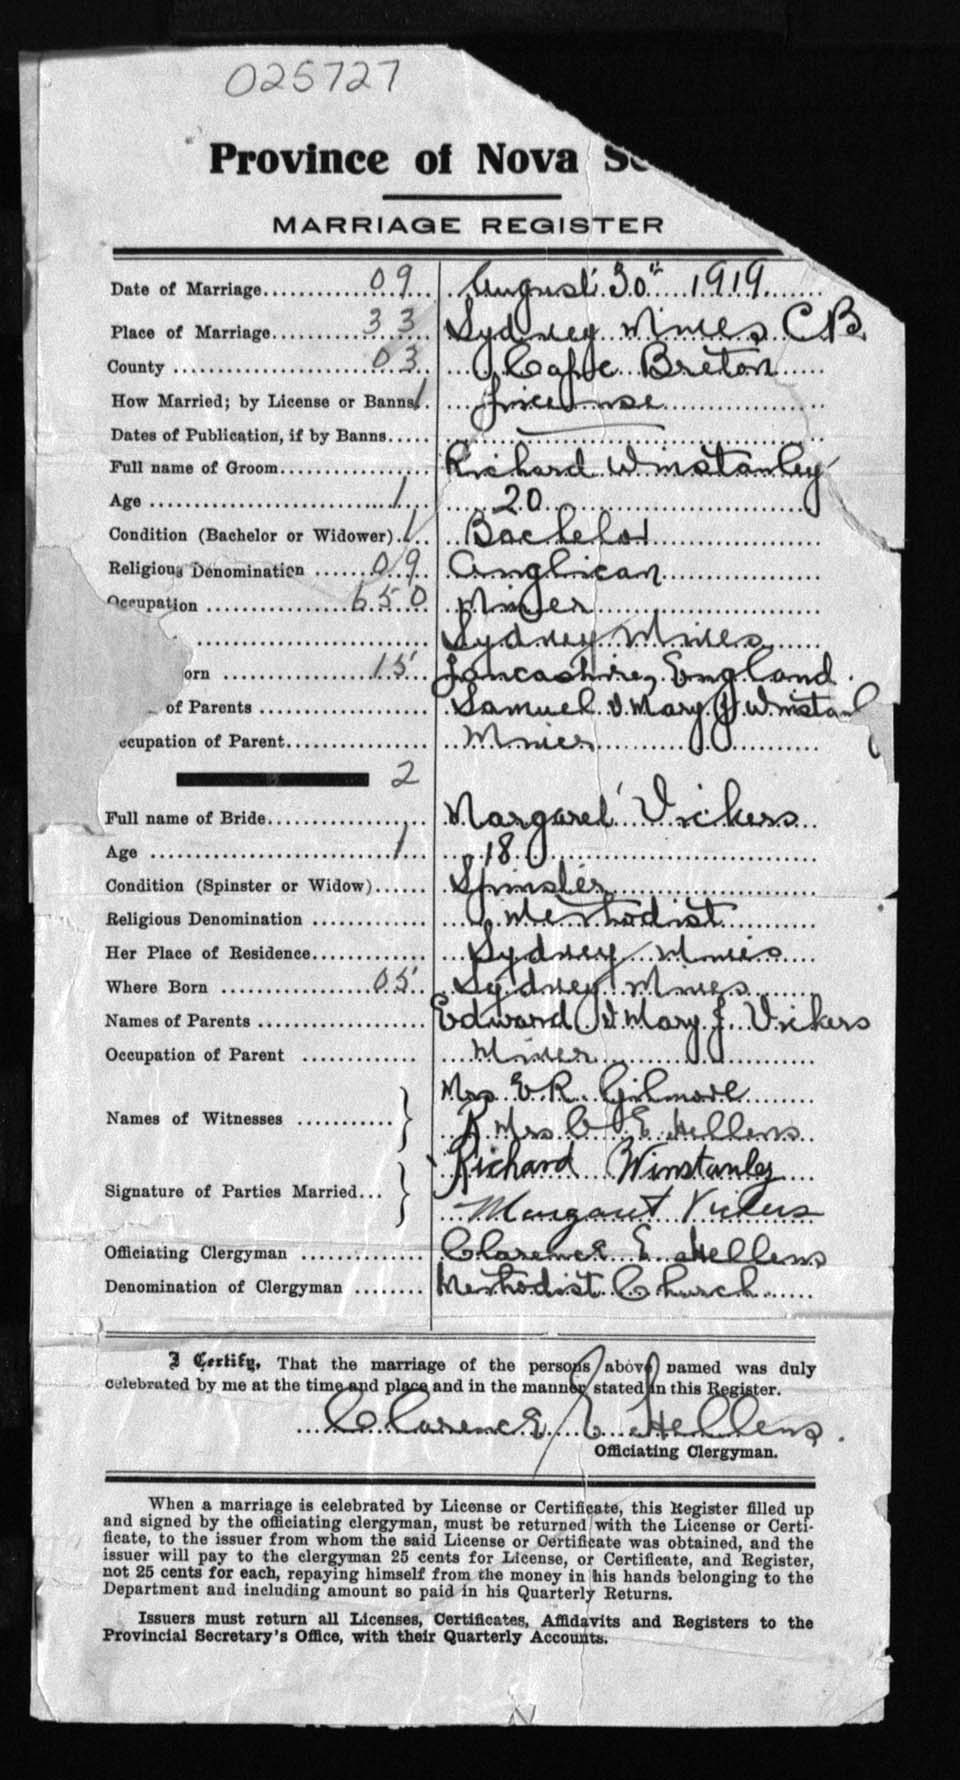 025727
Province of Nova Sc
MARRIAGE REGISTER
Date of Marriage 09 August 30th 1919
Place of Marriage 33 Sydney Mines C.B.
County 03 Cape Breton
How Married; by License or Banns 1 License
Dates of Publication, if by Banns
Full name of Groom Richard Winstanley
Age 1 20
Condition (Bachelor or Widower) 1 Bachelor
Religious Denomination 09 Anglican
Occupation 650 Miner
Sydney Mines
orn 15 Lancashire, England
of Parents Samuel & Mary J Winstanl
ccupation of Parent Miner
2
Full name of Bride Margaret Vickers
Age 1 18
Condition (Spinster or Widow) Spinster
Religious Denomination Methodist
Her Place of Residence Sydney Mines
Where Born 05 Sydney Mines
Names of Parents Edward & Mary J. Vickers
Occupation of Parent Miner
Mrs. E R. Gilmore
Names of Witnesses
Mrs C E Hellens
Richard Winstanley
Signature of Parties Married
Margaret Vickers
Officiating Clergyman Clarence E. Hellens
Denomination of Clergyman Methodist Church
I Certify, That the marriage of the persons above named was duly
celebrated by me at the time and place and in the manner stated in this Register.
Clarence E. Hellens.
Officiating Clergyman.
When a marriage is celebrated by License or Certificate, this Register filled up
and signed by the officiating clergyman, must be returned with the License or Certi-
ficate, to the issuer from whom the said License or Certificate was obtained, and the
issuer will pay to the clergyman 25 cents for License, or Certificate, and Register,
not 25 cents for each, repaying himself from the money in his hands belonging to the
Department and including amount so paid in his Quarterly Returns.
Issuers must return all Licenses, Certificates, Affidavits and Registers to the
Provincial Secretary's Office, with their Quarterly Accounts.